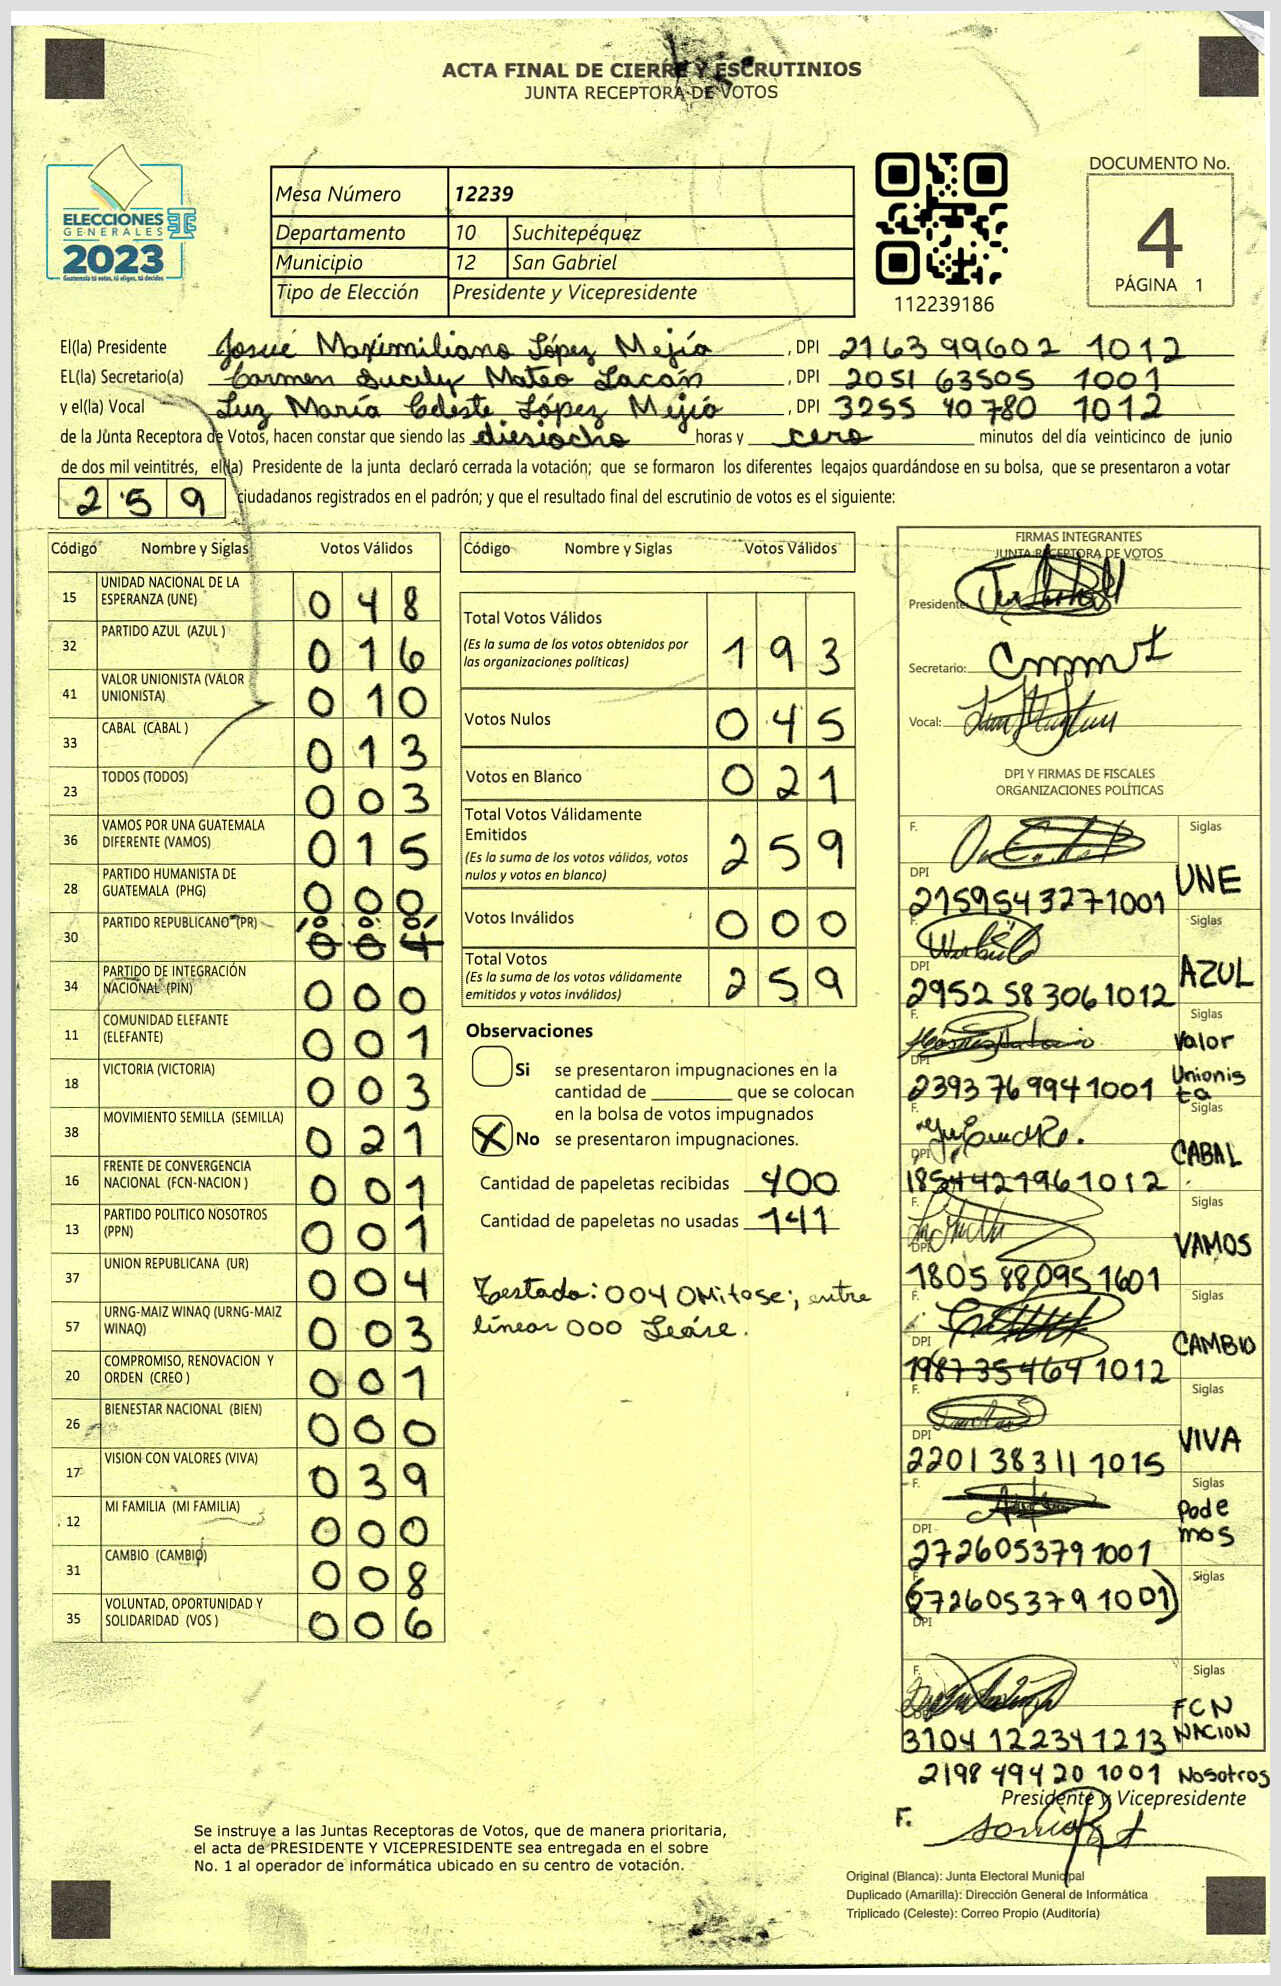 ACTA FINAL DE CIERRE Y ESCRUTINIOS
JUNTA RECEPTORA DE VOTOS
ELECCIONES
GENERALES
2023
Guatemala tú votas, tú eliges, tú decides
Mesa Número 12239
Departamento 10 Suchitepéquez
Municipio 12 San Gabriel
Tipo de Elección Presidente y Vicepresidente
112239186
DOCUMENTO No.
4
PÁGINA 1
El(la) Presidente Josué Maximiliano López Mejía , DPI 2163 99602 1012
EL(la) Secretario(a) Carmen Sucily Mateo Sacán , DPI 2051 63505 1001
y el(la) Vocal Luz María Celeste López Mejía , DPI 3255 40780 1012
de la Junta Receptora de Votos, hacen constar que siendo las diesiocho horas y cero minutos del día veinticinco de junio
de dos mil veintitrés, el(la) Presidente de la junta declaró cerrada la votación; que se formaron los diferentes legajos guardándose en su bolsa, que se presentaron a votar
259 ciudadanos registrados en el padrón; y que el resultado final del escrutinio de votos es el siguiente:
Código Nombre y Siglas Votos Válidos
15 UNIDAD NACIONAL DE LA ESPERANZA (UNE) 048
32 PARTIDO AZUL (AZUL ) 016
41 VALOR UNIONISTA (VALOR UNIONISTA) 010
33 CABAL (CABAL ) 013
23 TODOS (TODOS) 003
36 VAMOS POR UNA GUATEMALA DIFERENTE (VAMOS) 015
28 PARTIDO HUMANISTA DE GUATEMALA (PHG) 000
30 PARTIDO REPUBLICANO (PR) 000 004
34 PARTIDO DE INTEGRACIÓN NACIONAL (PIN) 000
11 COMUNIDAD ELEFANTE (ELEFANTE) 001
18 VICTORIA (VICTORIA) 003
38 MOVIMIENTO SEMILLA (SEMILLA) 021
16 FRENTE DE CONVERGENCIA NACIONAL (FCN-NACION ) 001
13 PARTIDO POLITICO NOSOTROS (PPN) 001
37 UNION REPUBLICANA (UR) 004
57 URNG-MAIZ WINAQ (URNG-MAIZ WINAQ) 003
20 COMPROMISO, RENOVACION Y ORDEN (CREO ) 001
26 BIENESTAR NACIONAL (BIEN) 000
17 VISION CON VALORES (VIVA) 039
12 MI FAMILIA (MI FAMILIA) 000
31 CAMBIO (CAMBIO) 008
35 VOLUNTAD, OPORTUNIDAD Y SOLIDARIDAD (VOS ) 006
Código Nombre y Siglas Votos Válidos
Total Votos Válidos 193
(Es la suma de los votos obtenidos por
las organizaciones políticas)
Votos Nulos 045
Votos en Blanco 021
Total Votos Válidamente
Emitidos 259
(Es la suma de los votos válidos, votos
nulos y votos en blanco)
Votos Inválidos 000
Total Votos 259
(Es la suma de los votos válidamente
emitidos y votos inválidos)
Observaciones
Si se presentaron impugnaciones en la
cantidad de ________ que se colocan
en la bolsa de votos impugnados
X No se presentaron impugnaciones.
Cantidad de papeletas recibidas 400
Cantidad de papeletas no usadas 141
Testado: 004 OMitase; entre
línear 000 Leáse.
FIRMAS INTEGRANTES
JUNTA RECEPTORA DE VOTOS
Presidente:
Secretario:
Vocal:
DPI Y FIRMAS DE FISCALES
ORGANIZACIONES POLÍTICAS
F. Siglas
DPI UNE
2159543271001
F. Siglas
DPI AZUL
2952 58 3061012
F. Siglas
DPI Valor Unionista
2393 76 9941001
F. Siglas
DPI CABAL
1854421961012
F. Siglas
DPI VAMOS
1805 88095 1601
F. Siglas
DPI CAMBIO
1987 35469 1012
F. Siglas
DPI VIVA
2201 38311 1015
F. Siglas
DPI Podemos
272605379 1001
F. Siglas
(272605379 1001)
DPI
F. Siglas
DPI FCN NACION
3104 12234 1213
2198 494 20 1001 Nosotros
Presidente y Vicepresidente
F.
Se instruye a las Juntas Receptoras de Votos, que de manera prioritaria,
el acta de PRESIDENTE Y VICEPRESIDENTE sea entregada en el sobre
No. 1 al operador de informática ubicado en su centro de votación.
Original (Blanca): Junta Electoral Municipal
Duplicado (Amarilla): Dirección General de Informática
Triplicado (Celeste): Correo Propio (Auditoría)